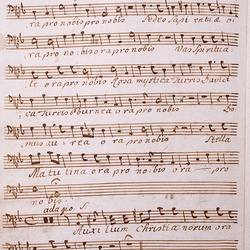 ra pro nobis pro nobis Sedes sapientiae o
ra pro nobis ora pro nobis Vas Spiritua
le ora pro nobis Rosa mystica Turris Davidi
ca Turris Eburnea ora pro nobis Do
mus aurea o ra pro nobis Stella
Matutina ora pro nobis ora pro
nobis.
adagio
Auxilium Christianorum ora